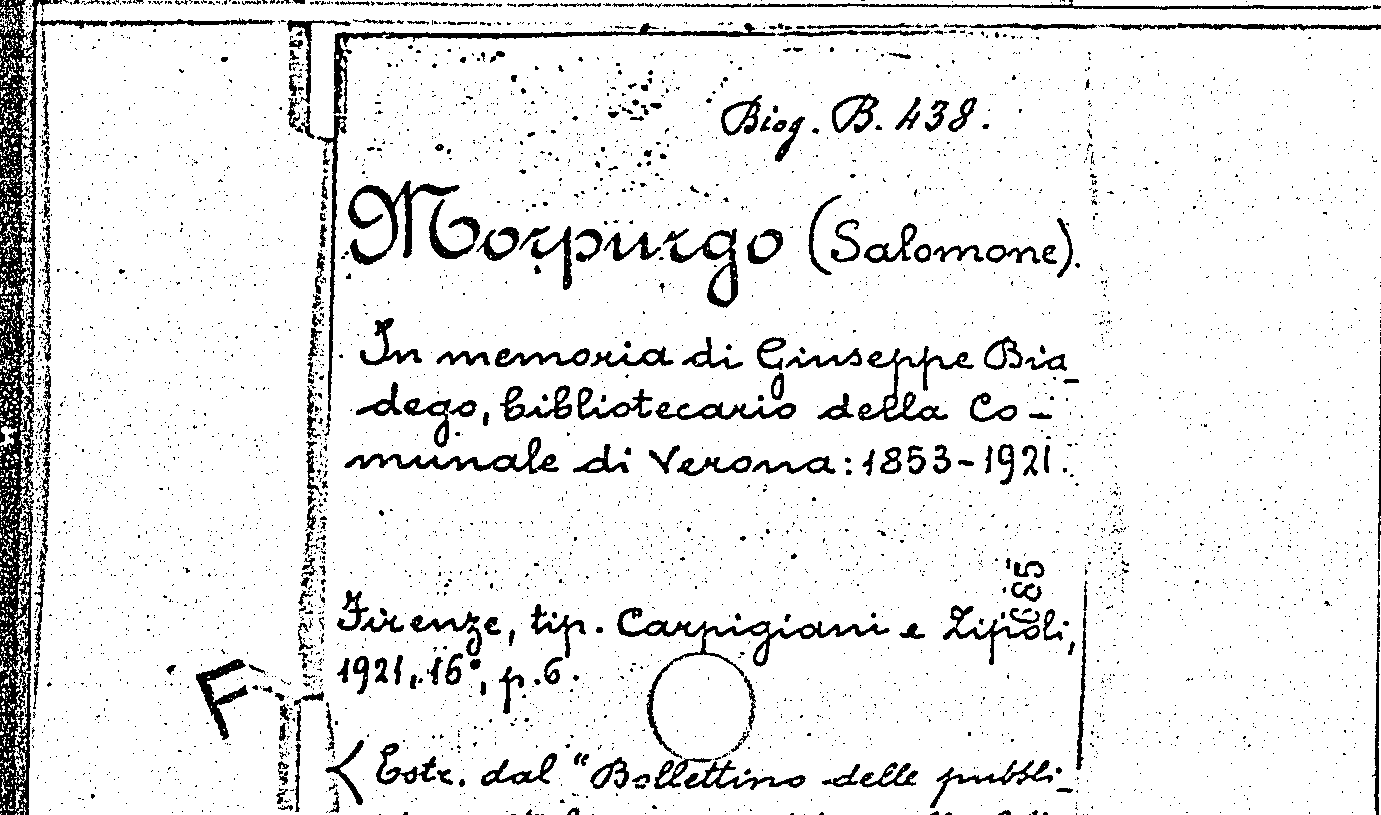 Biog. B. 438.
Morpurgo (Salomone).
In memoria di Giuseppe Bia-
dego, bibliotecario della Co-
munale di Verona: 1853-1921.
Firenze, tip. Carpigiani e Zipoli,
1921, 16°, p. 6.
F
Estr. dal "Bollettino delle pubbli-